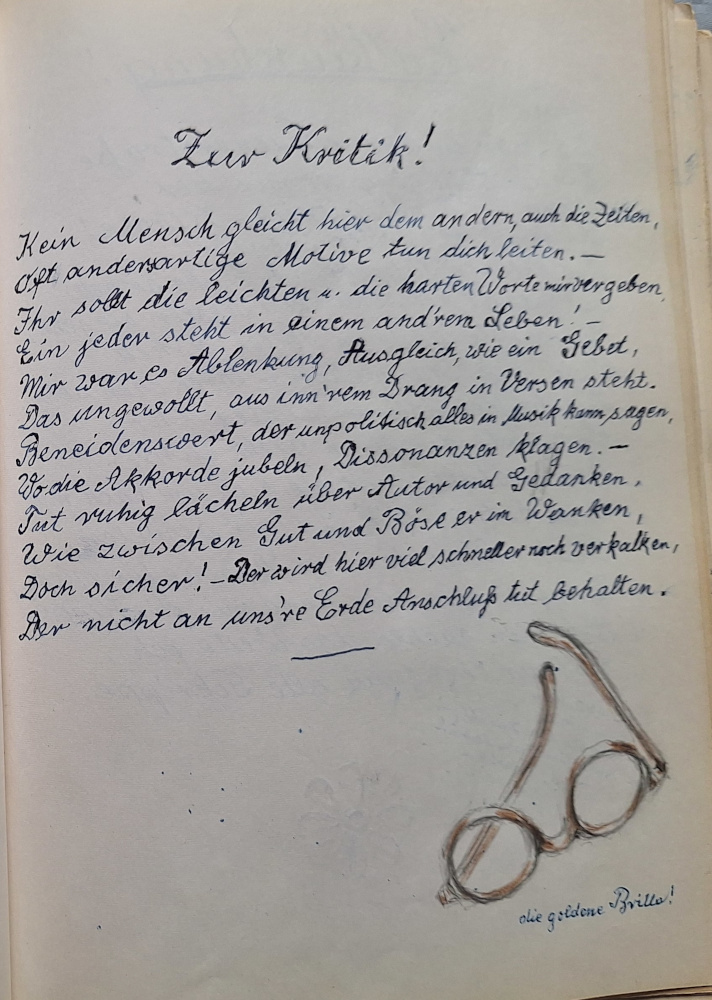 Zur Kritik!
Kein Mensch gleicht hier dem andern, auch die Zeiten,
Oft andersartige Motive tun dich leiten. —
Ihr sollt die leichten u. die harten Worte mir vergeben,
Ein jeder steht in einem and'rem Leben! —
Mir war es Ablenkung, Ausgleich, wie ein Gebet,
Das ungewollt, aus inn'rem Drang in Versen steht.
Beneidenswert, der unpolitisch alles in Musik kann sagen,
Wo die Akkorde jubeln, Dissonanzen klagen. —
Tut ruhig lächeln über Autor und Gedanken,
Wie zwischen Gut und Böse er im Wanken,
Doch sicher! — Der wird hier viel schneller noch verkalken,
Der nicht an uns're Erde Anschluß tut behalten.
die goldene Brille!